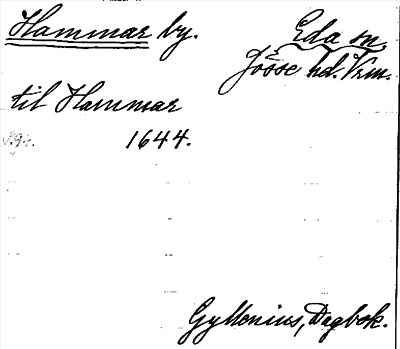 Hammar by.
Eda sn.
Jösse hd. Vrm.
til Hammar
1644.
Gyllenius, Dagbok.